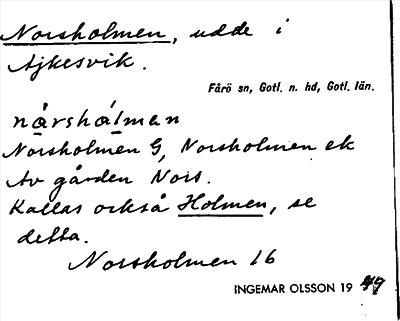 Norsholmen, udde i
Ajkesvik.
Fårö sn, Gotl. n. hd, Gotl. län.
nårshålman
Norsholmen G, Norsholmen ek
Av gården Nors.
Kallas också Holmen, se
detta.
Norsholmen 16
INGEMAR OLSSON 19 49